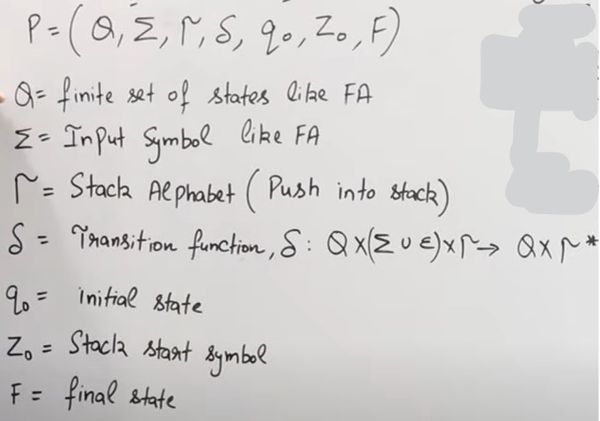 P = ( Q, Σ, Γ, δ, q₀, Z₀, F )
Q = finite set of states like FA
Σ = Input Symbol like FA
Γ = Stack Alphabet ( Push into stack )
δ = Transition function, δ : Q X (Σ ∪ ε) X Γ → Q X Γ *
q₀ = initial state
Z₀ = Stack start symbol
F = final state